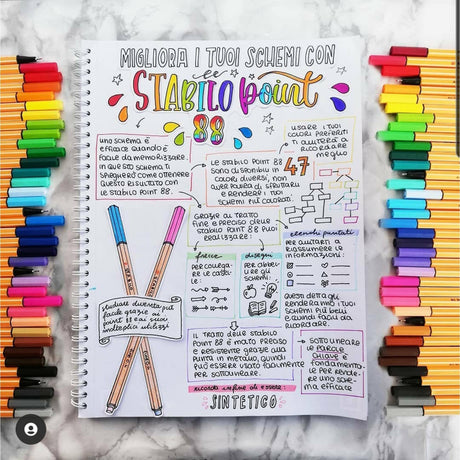 MIGLIORA I TUOI SCHEMI CON
STABILO point
88
UNO SCHEMA È
EFFICACE QUANDO È
FACILE DA MEMORIZZARE.
IN QUESTO SCHEMA TI
SPIEGHERÒ COME OTTENERE
QUESTO RISULTATO CON
LE STABILO POINT 88.
LE STABILO POINT 88
SONO DISPONIBILI IN 47
COLORI DIVERSI, NON
AVER PAURA DI SFRUTTARLI
E RENDERE I TUOI
SCHEMI PIÙ COLORATI.
USARE I TUOI
COLORI PREFERITI
TI AIUTERÀ A
RICORDARE
MEGLIO
GRAZIE AL TRATTO
FINE E PRECISO DELLE
STABILO POINT 88 PUOI
REALIZZARE:
frecce
PER COLLEGA-
RE LE CASEL-
LE:
disegni
PER ABBELLI-
RE GLI
SCHEMI:
elenchi puntati
PER AIUTARTI A
RIASSUMERE LE
INFORMAZIONI:
QUESTI DETTAGLI
RENDERANNO I TUOI
SCHEMI PIÙ BELLI
E QUINDI FACILI DA
RICORDARE.
studiare diventa più
facile grazie ai
point 88 e ai suoi
molteplici utilizzi!
IL TRATTO DELLE STABILO
POINT 88 È MOLTO PRECISO
E RESISTENTE GRAZIE ALLA
PUNTA IN METALLO, QUINDI
PUÒ ESSERE USATO FACILMENTE
PER SOTTOLINEARE.
SOTTOLINEARE
LE PAROLE
CHIAVE È
FONDAMENTA-
LE PER RENDE-
RE UNO SCHE-
MA EFFICACE
ricorda infine di essere:
SINTETICO